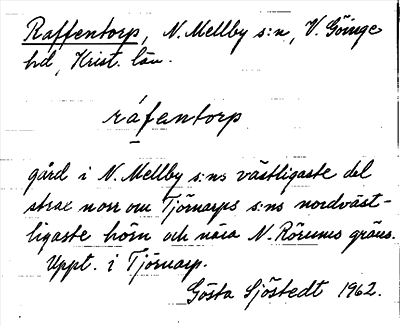 Raffentorp, N. Mellby s:n, V. Göinge
hd, Krist. län.
ráfentorp
gård i N. Mellby s:ns västligaste del
strax norr om Tjörnarps s:ns nordväst-
ligaste hörn och nära N. Rörums gräns.
Uppt. i Tjörnarp.
Gösta Sjöstedt 1962.